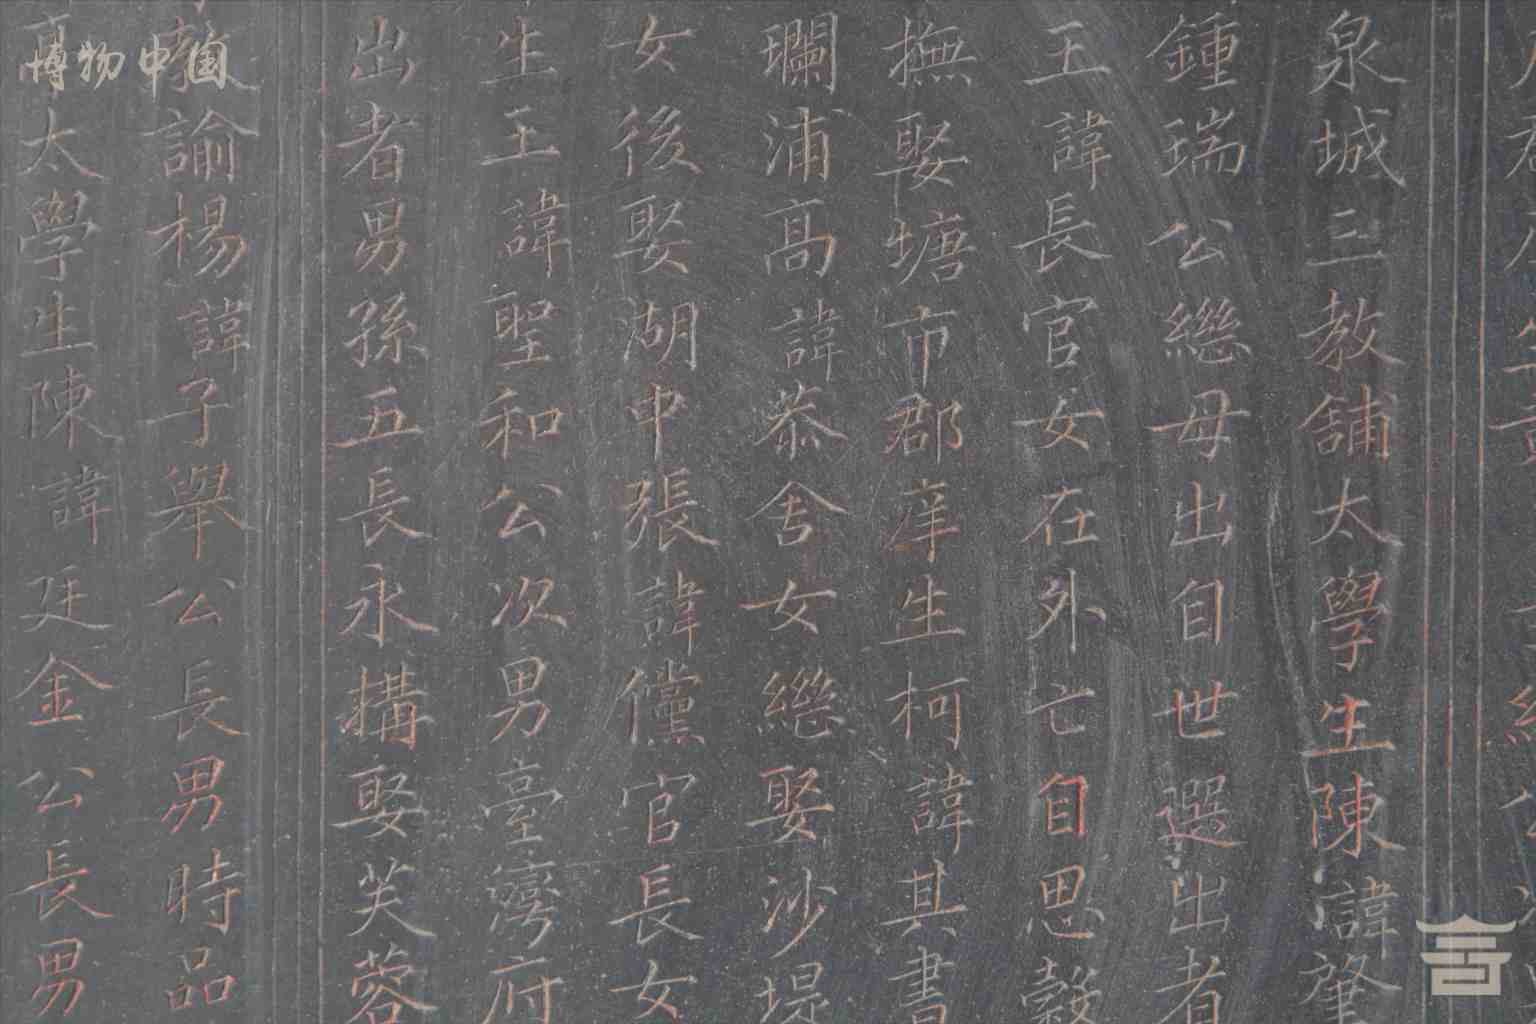 泉城三教舖太學生陳諱肇
鍾瑞公繼母出自世選出者
王諱長官女在外亡自思穀
撫娶塘市郡庠生柯諱其書
瓓浦高諱恭舍女繼娶沙堤
女後娶湖中張諱儻官長女
生王諱聖和公次男臺灣府
出者男孫五長永構娶芙蓉
諭楊諱子舉公長男時品
太學生陳諱廷金公長男
博物中国